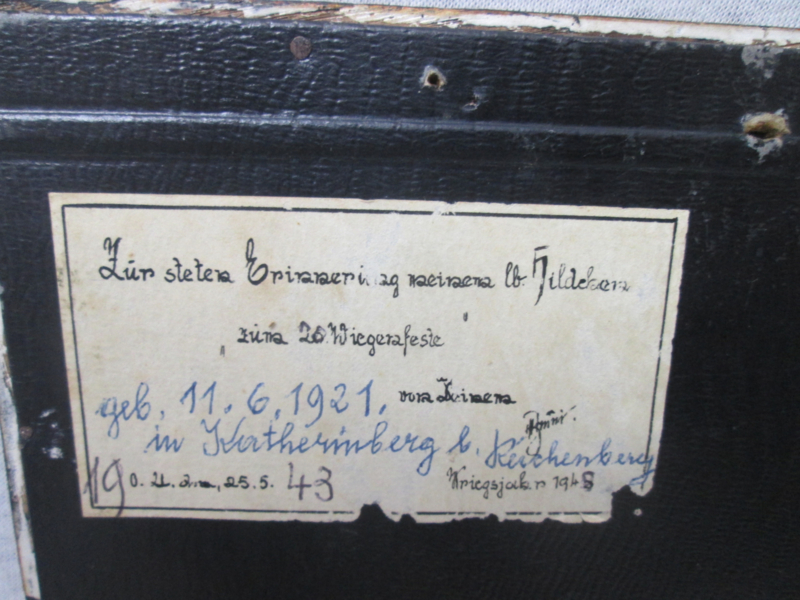 Zur steten Erinnerung meinem lb. Hildchen
zum 20. Wiegenfeste
geb. 11. 6. 1921. von Deinem
in Katherinberg b. Reichenberg
19 O. U. den, 25.5. 43 Kriegsjahr 194